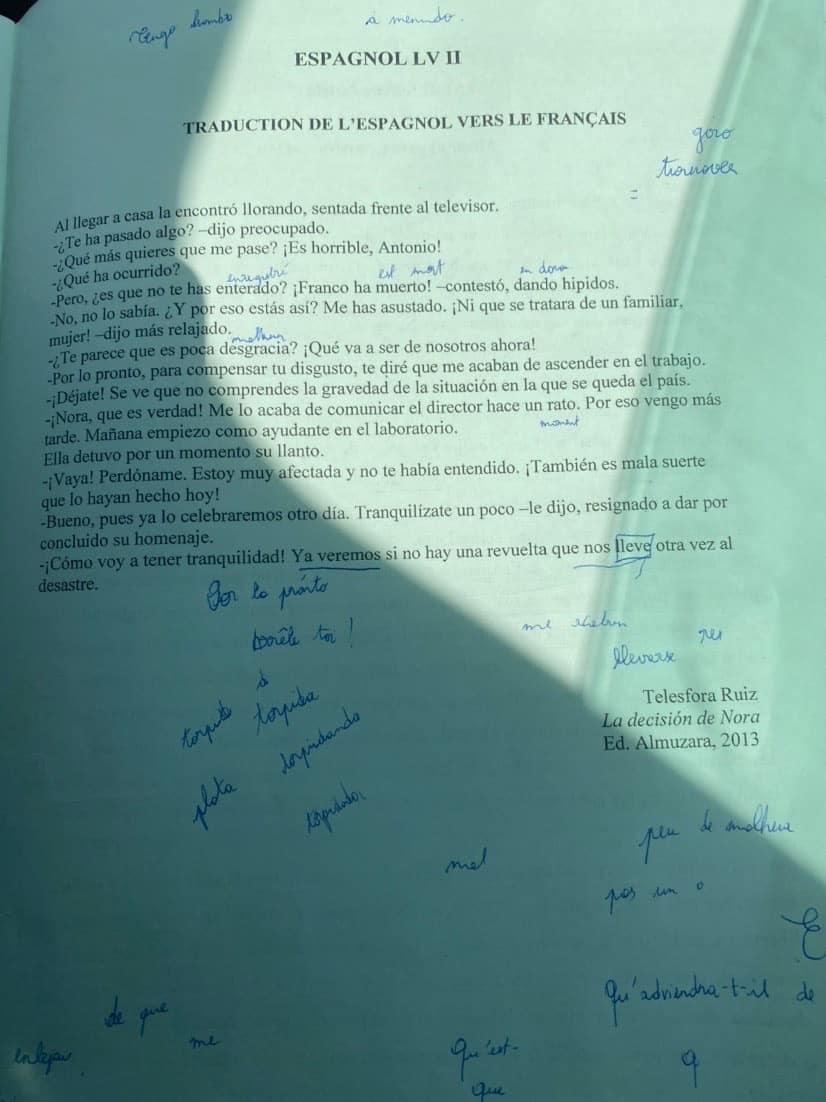 Tengo
a menudo.
ESPAGNOL LV II
TRADUCTION DE L'ESPAGNOL VERS LE FRANÇAIS
goro
=
Al llegar a casa la encontró llorando, sentada frente al televisor.
-¿Te ha pasado algo? –dijo preocupado.
-¿Qué más quieres que me pase? ¡Es horrible, Antonio!
-¿Qué ha ocurrido?
enregistré est mort
-Pero, ¿es que no te has enterado? ¡Franco ha muerto! –contestó, dando hipidos.
-No, no lo sabía. ¿Y por eso estás así? Me has asustado. ¡Ni que se tratara de un familiar,
mujer! –dijo más relajado.
-¿Te parece que es poca desgracia? ¡Qué va a ser de nosotros ahora!
-Por lo pronto, para compensar tu disgusto, te diré que me acaban de ascender en el trabajo.
-¡Déjate! Se ve que no comprendes la gravedad de la situación en la que se queda el país.
-¡Nora, que es verdad! Me lo acaba de comunicar el director hace un rato. Por eso vengo más
tarde. Mañana empiezo como ayudante en el laboratorio.
moment
Ella detuvo por un momento su llanto.
-¡Vaya! Perdóname. Estoy muy afectada y no te había entendido. ¡También es mala suerte
que lo hayan hecho hoy!
-Bueno, pues ya lo celebraremos otro día. Tranquilízate un poco –le dijo, resignado a dar por
concluido su homenaje.
-¡Cómo voy a tener tranquilidad! Ya veremos si no hay una revuelta que nos lleve otra vez al
desastre.
Por lo pronto
me
toi !
lleverse
à
Telesfora Ruiz
La decisión de Nora
Ed. Almuzara, 2013
plata
peu de
mel
pas un o
E
Qu'adviendra-t-il de
de que
me
Qu'est-
que
q